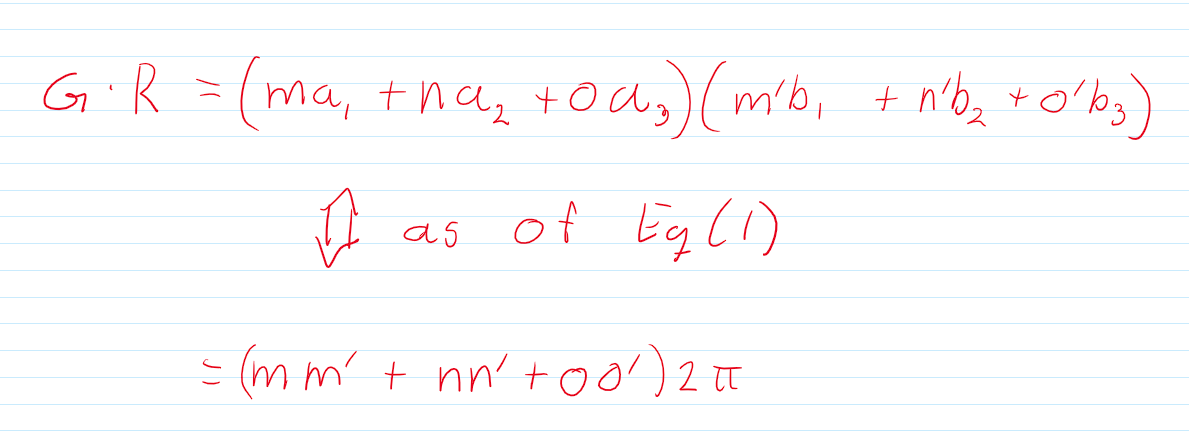 G · R = (ma₁ + na₂ + oa₃)(m'b₁ + n'b₂ + o'b₃)
⇕ as of Eq(1)
= (mm' + nn' + oo')2π